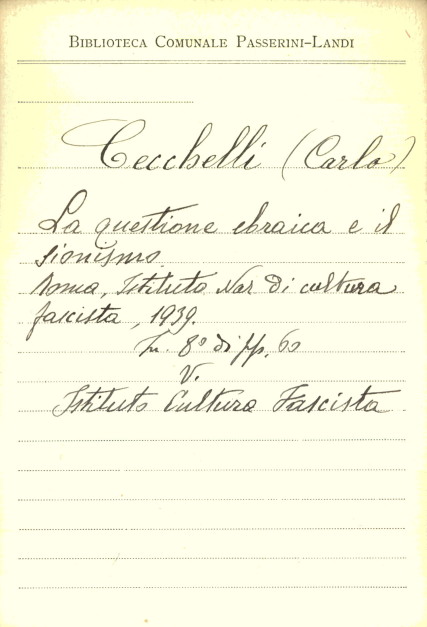 BIBLIOTECA COMUNALE PASSERINI-LANDI
Cecchelli (Carlo)
La questione ebraica e il
sionismo.
Roma, Istituto Naz. di cultura
fascista, 1939.
In. 8º di pp. 60
V.
Istituto Cultura Fascista